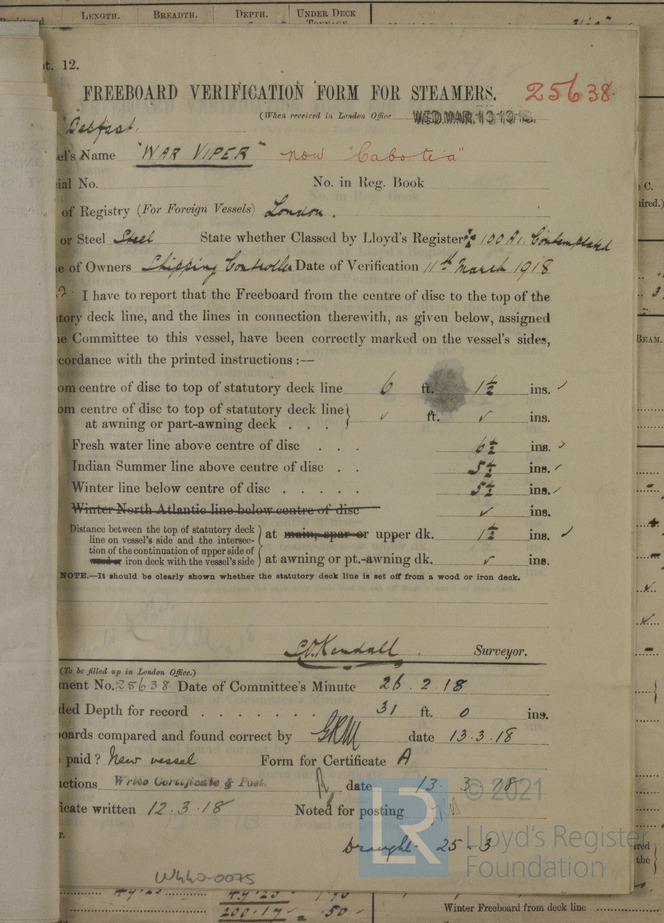 LENGTH. BREADTH. DEPTH. UNDER DECK
TONNAGE
t. 12.
FREEBOARD VERIFICATION FORM FOR STEAMERS. 25638
(When received in London Office WED. MAR. 13 1918
Belfast.
el's Name "WAR VIPER" now "Cabotia"
ial No. No. in Reg. Book
of Registry (For Foreign Vessels) London.
or Steel Steel State whether Classed by Lloyd's Register 100 A1. Contemplated
e of Owners Shipping Controller Date of Verification 11th March 1918
I have to report that the Freeboard from the centre of disc to the top of the
tory deck line, and the lines in connection therewith, as given below, assigned
e Committee to this vessel, have been correctly marked on the vessel's sides,
cordance with the printed instructions :—
om centre of disc to top of statutory deck line 6 ft. 1½ ins. ✓
om centre of disc to top of statutory deck line
at awning or part-awning deck . . . } ✓ ft. ✓ ins.
Fresh water line above centre of disc . . . 6½ ins. ✓
Indian Summer line above centre of disc . . 5½ ins. ✓
Winter line below centre of disc . . . . . 5½ ins. ✓
Winter North Atlantic line below centre of disc ✓ ins.
Distance between the top of statutory deck
line on vessel's side and the intersec- } at main, spar or upper dk. 1½ ins. ✓
tion of the continuation of upper side of
wood or iron deck with the vessel's side } at awning or pt.-awning dk. ✓ ins.
NOTE.—It should be clearly shown whether the statutory deck line is set off from a wood or iron deck.
Kendall. Surveyor.
(To be filled up in London Office.)
ment No. 25638 Date of Committee's Minute 26.2.18
ded Depth for record . . . . . . . 31 ft. 0 ins.
oards compared and found correct by date 13.3.18
paid? New vessel Form for Certificate A
uctions Write Certificate & Post. date 13.3.18
icate written 12.3.18 Noted for posting
r.
Draught 25-3
W440-0075
© 2021
LR Lloyd's Register
Foundation
Winter Freeboard from deck line
BEAM.